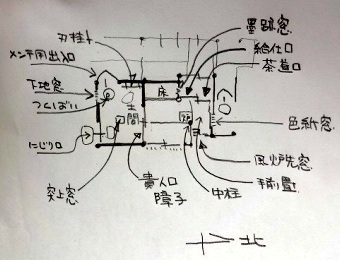 刃掛け
墨跡窓
給仕口
茶道口
メンテ用出入口
下地窓
つくばい
にじり口
突上窓
貴人口
障子
中柱
手前畳
風炉先窓
色紙窓
土間
床
炉
北